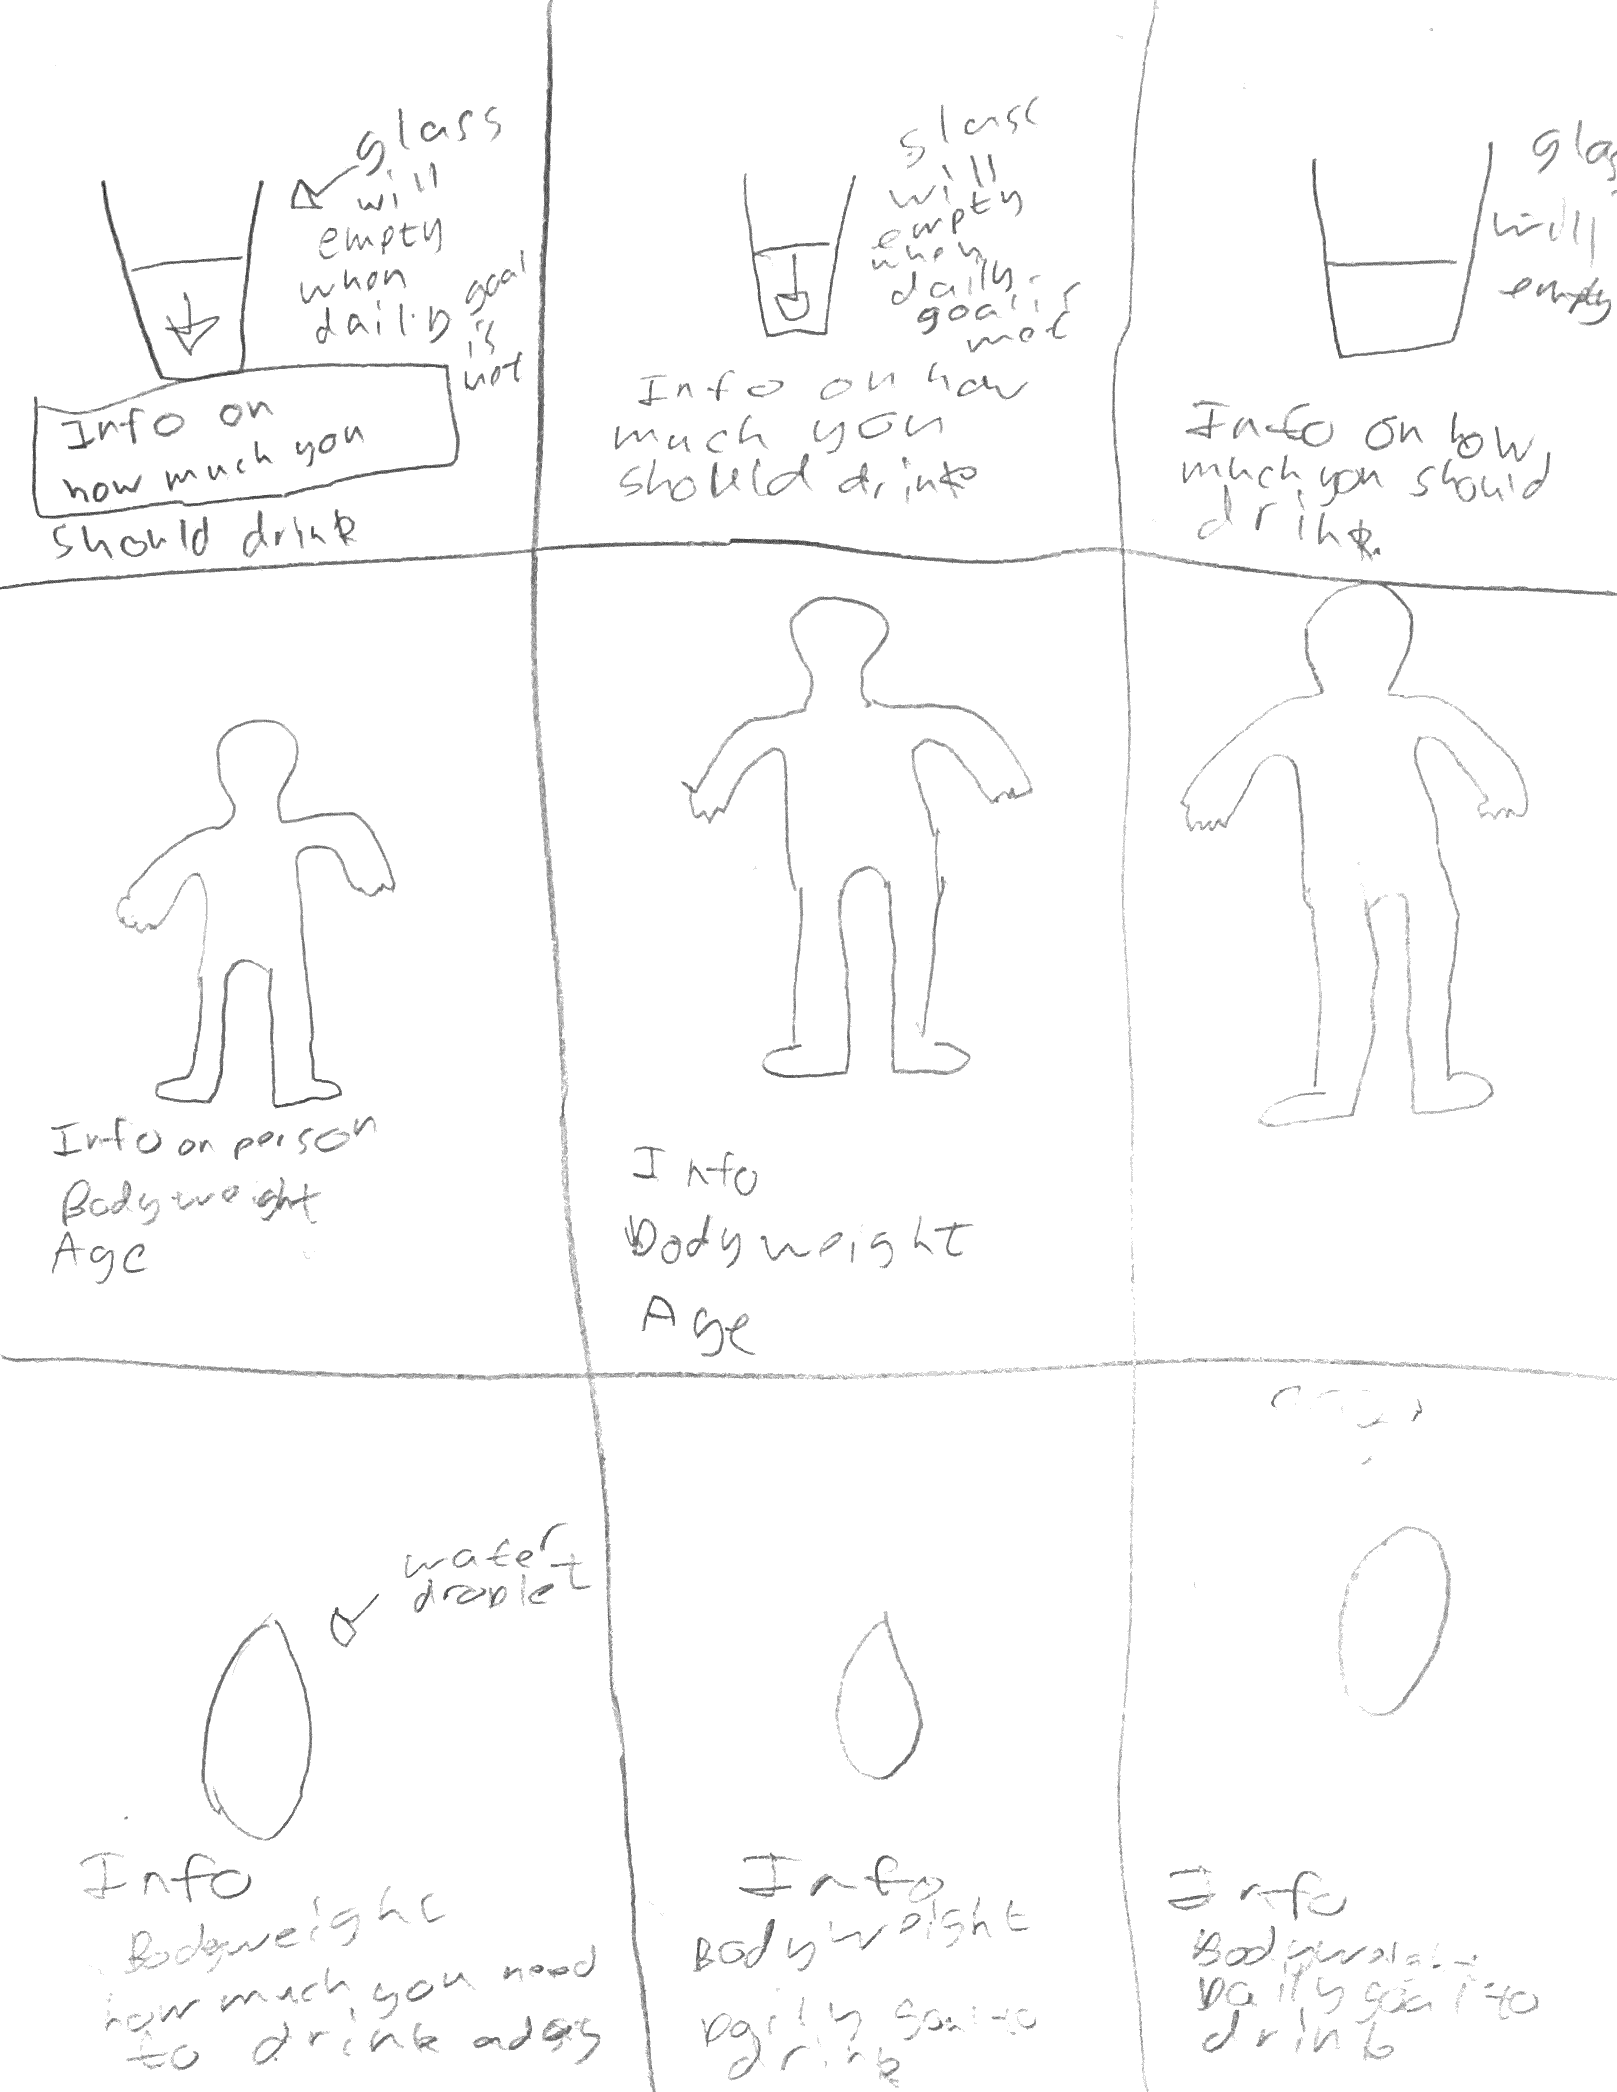 glass
will
empty
when
daily goal
is
not
Info on
how much you
should drink
glass
will
empty
when
daily
goal is
met
Info on how
much you
should drink
glas
will
empty
Info on how
much you should
drink
Info on person
Bodyweight
Age
Info
Bodyweight
Age
water
droplet
Info
Bodyweight
how much you need
to drink a day
Info
Bodyweight
Daily goal to
drink
Info
Bodyweight
Daily goal to
drink